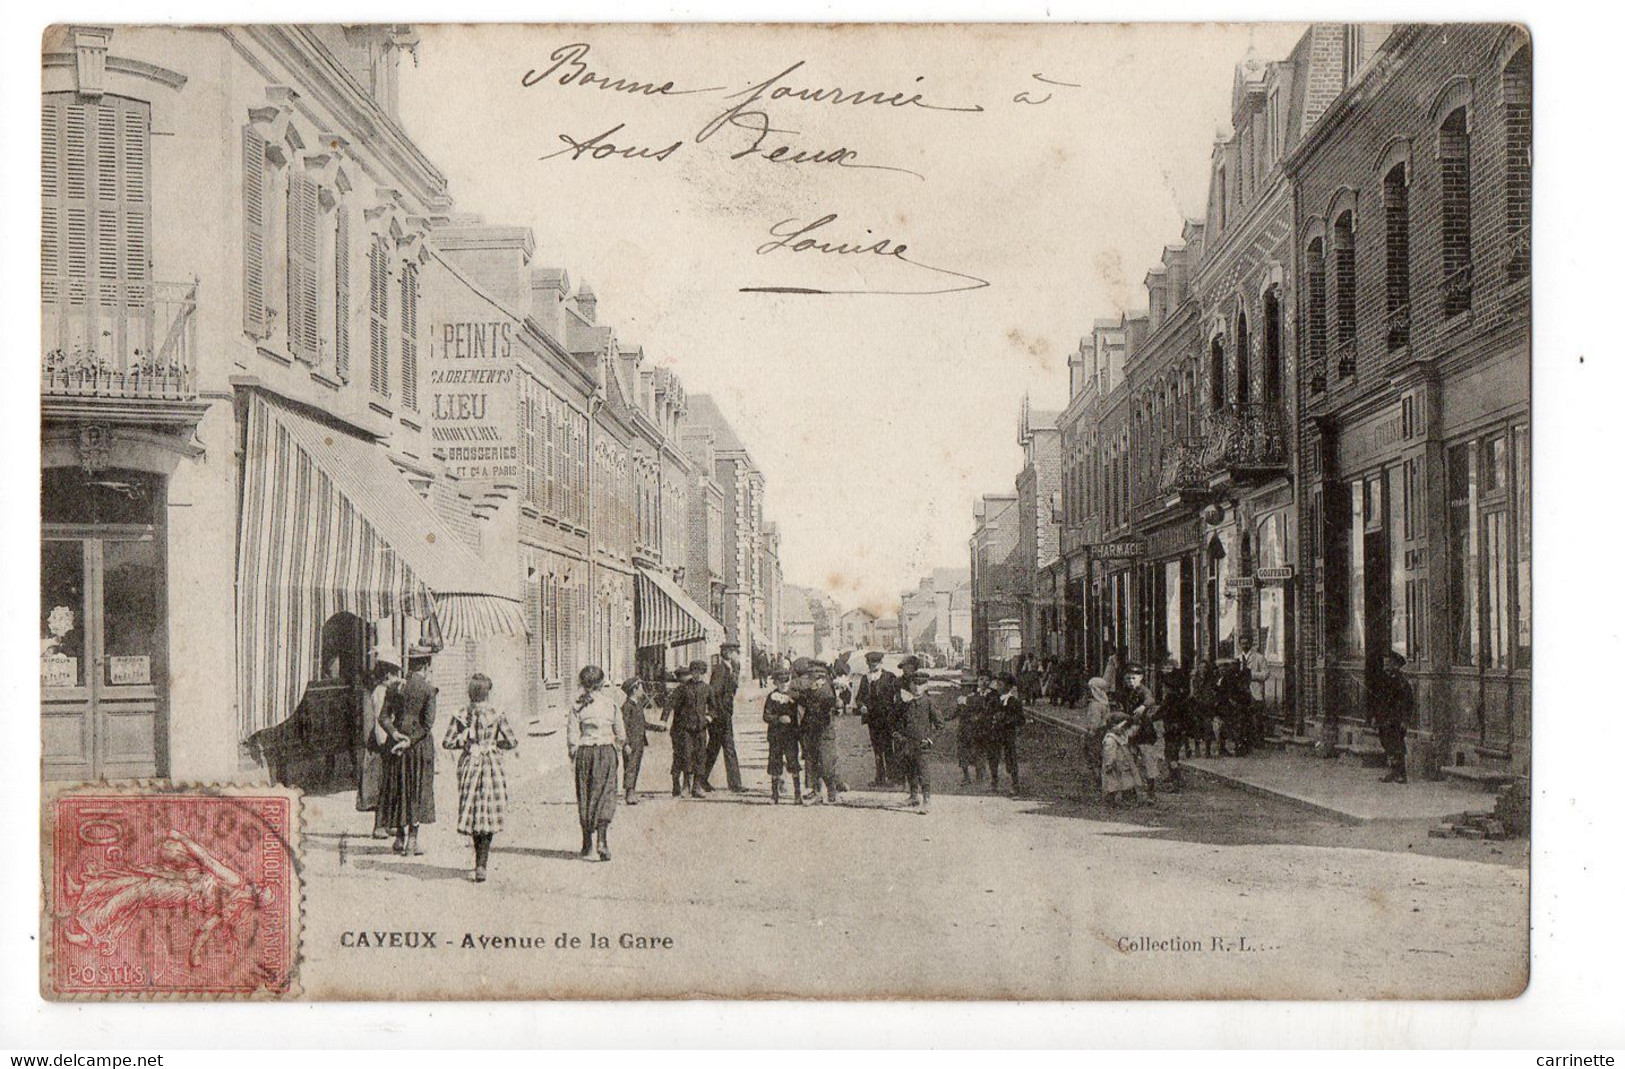 Bonne journée à
tous deux
Louise
PEINTS
CADREMENTS
LIEU
GROSSERIES
ET Cie A PARIS
PHARMACIE
COIFFEUR
COIFFEUR
RIPOLIN
RIPOLIN
REPUBLIQUE FRANÇAISE
10c
POSTES
CAYEUX - Avenue de la Gare
Collection R. L.
www.delcampe.net
carrinette